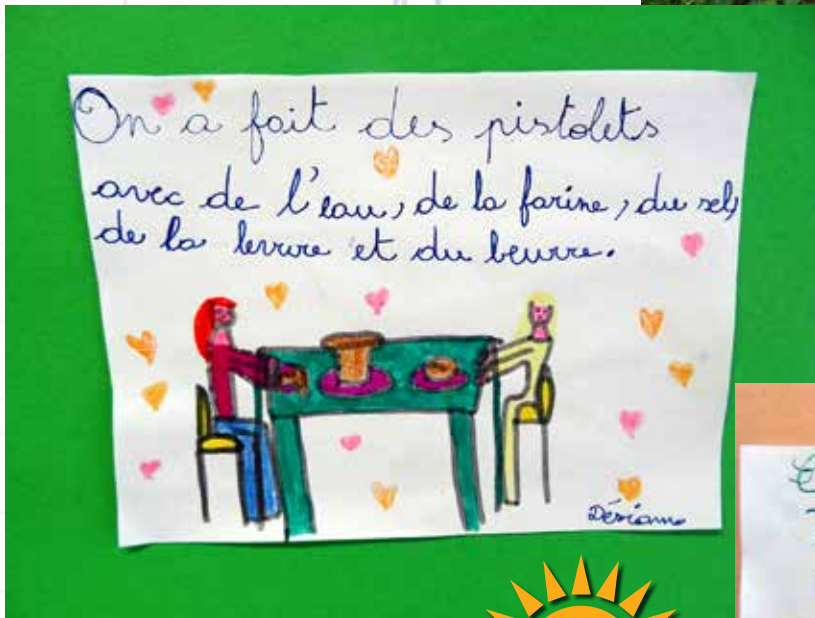 On a fait des pistolets
avec de l'eau, de la farine, du sel,
de la levure et du beurre.